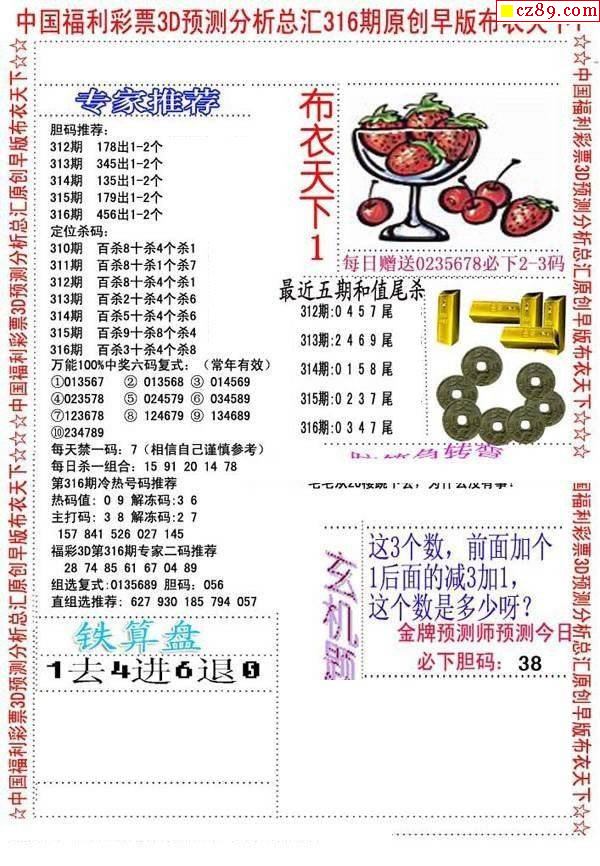 cz89.com
中国福利彩票3D预测分析总汇316期原创早版布衣天下
☆中国福利彩票3D预测分析总汇原创早版布衣天下☆☆
☆☆中国福利彩票3D预测分析总汇原创早版布衣天下☆☆
专家推荐
胆码推荐:
312期 178出1-2个
313期 345出1-2个
314期 135出1-2个
315期 179出1-2个
316期 456出1-2个
定位杀码:
310期 百杀8十杀4个杀1
311期 百杀8十杀1个杀7
312期 百杀3十杀1个杀6
313期 百杀2十杀4个杀6
314期 百杀5十杀4个杀6
315期 百杀9十杀8个杀4
316期 百杀3十杀4个杀8
万能100%中奖六码复式:(常年有效)
①013567 ② 013568 ③ 014569
④023578 ⑤ 024579 ⑥ 034589
⑦123678 ⑧ 124679 ⑨ 134689
⑩234789
每天禁一码:7(相信自己谨慎参考)
每日杀一组合:15 91 20 14 78
第316期冷热号码推荐
热码值:0 9 解冻码:3 6
主打码:3 8 解冻码:2 7
157 841 526 027 145
福彩3D第316期专家二码推荐
28 74 85 61 67 04 89
组选复式:0135689 胆码:056
直组选推荐:627 930 185 794 057
铁算盘
1去4进6退0
布衣天下1
每日赠送0235678必下2-3码
最近五期和值尾杀
312期:0 4 5 7 尾
313期:2 4 6 9 尾
314期:0 1 5 8 尾
315期:0 2 3 7 尾
316期:0 3 4 7 尾
脑筋急转弯
毛毛从20楼跳下去,为什么没有事?
玄机题
这3个数,前面加个
1后面的减3加1,
这个数是多少呀?
金牌预测师预测今日
必下胆码: 38
☆中国福利彩票3D预测分析总汇原创早版布衣天下